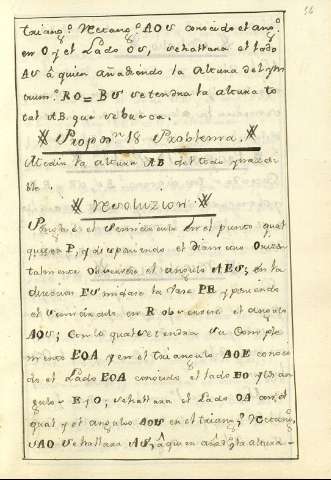 56
triang.º Rectang.º AOS conocido el ang.º
en O y el Lado OS, se hallara el lado
AS á quien añadiendo la Altura del ins
trum.º RO = BS se tendra la altura to
tal AB. que se busca.
Propon.n 18 Problema.
Medir la altura AB del todo ynacce
ble
Resoluzion
Pongase el Semicirculo en el punto qual
quiera P, y disponiendo el Diametro Orizon
talmente Observese el angulo AES, en la
direccion ES midase la vase PR y poniendo
el Semicirculo en R observese el angulo
AOS; Con lo qual se tendra su Comple
mento EOA y en el triangulo AOE conoci
do el Lado EOA conocido el lado EO y el an
gulo E y O; se hallara el Lado OA con el
qual y el angulo AOS en el triang.º Rectang.º
SAO se hallara AS, á quien añad.ª la altura